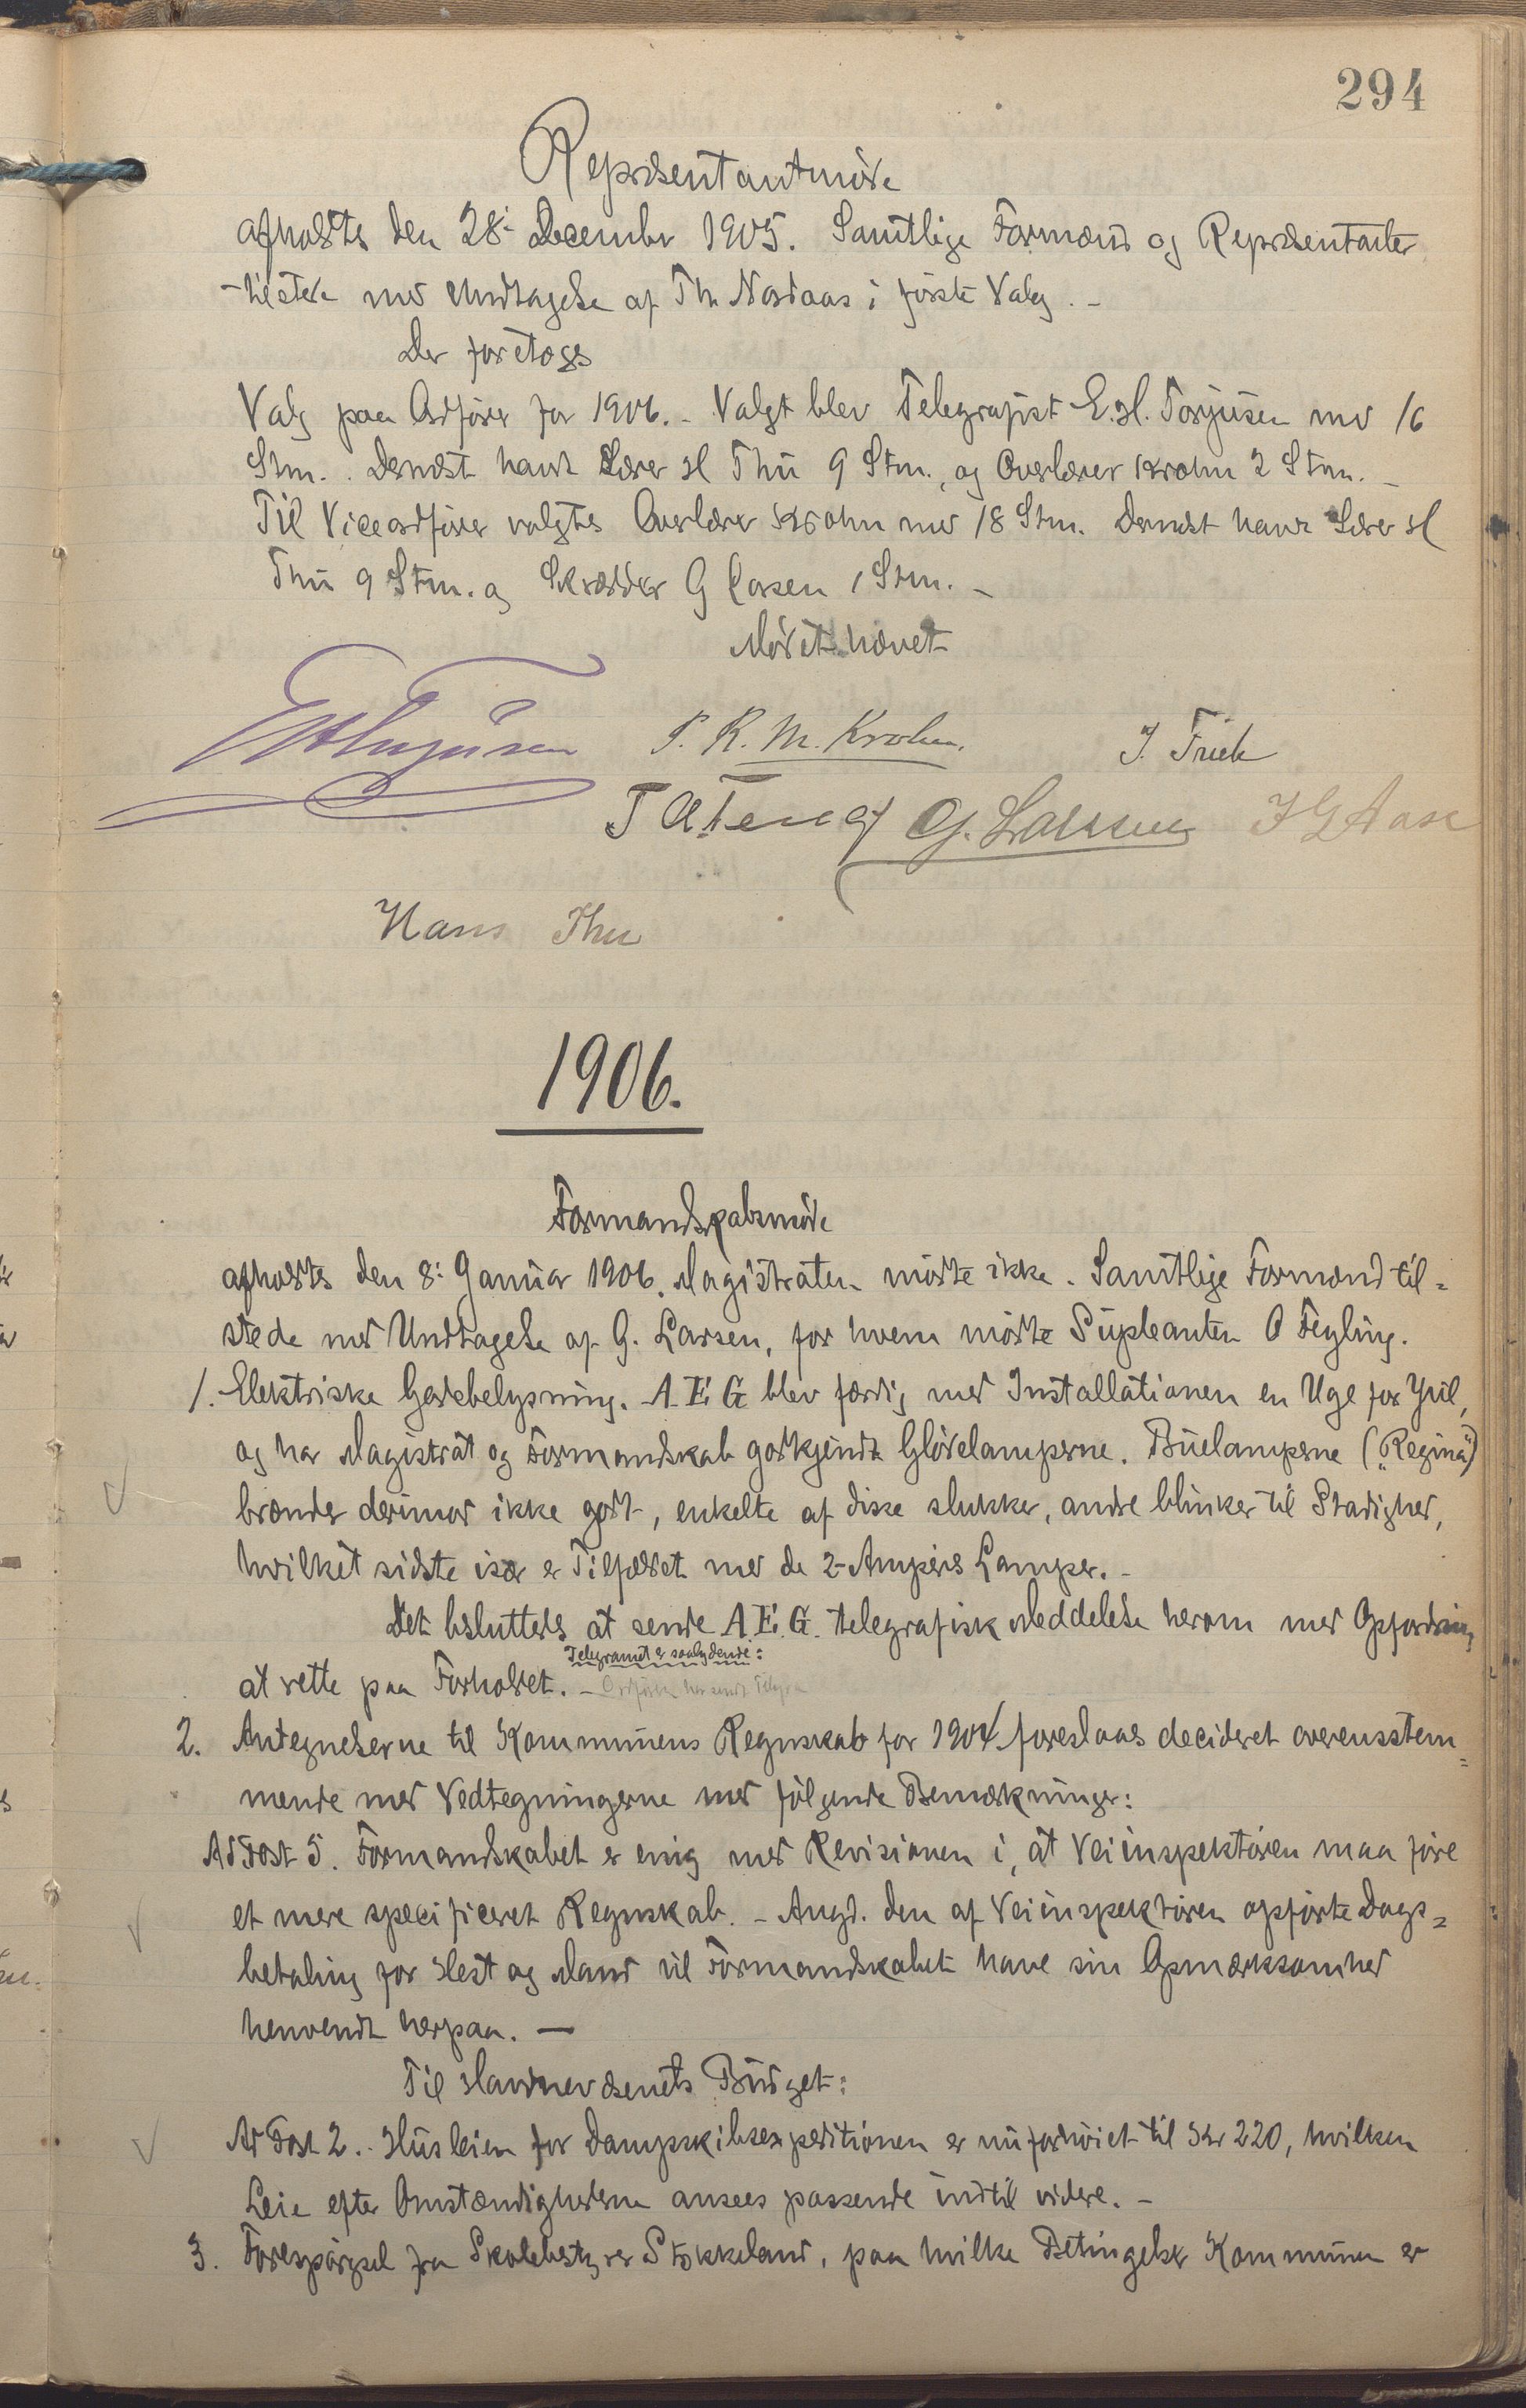 294
Repræsentantmøde
afholdtes den 28: December 1905. Samtlige Formænd og Repræsentanter
tilstede med Undtagelse af Th. Nordaas i første Valg. -
Der foretoges
Valg paa Ordfører for 1906. - Valgt blev Telegrafist E. H. Torjusen med 16
Stm. Dernæst havde Lærer H Thu 9 Stm., og Overlærer Krohn 2 Stm. -
Til Viceordfører valgtes Overlærer Krohn med 18 Stm. Dernæst havde Lærer H
Thu 9 Stm. og Skrædder G Larsen 1 Stm. -
Mødet hævet
EHTorjusen P. R. M. Krohn. J. Trieb
G. Larsen J G Aase
Hans Thu
1906.
Formandskabsmøde
afholdtes den 8: Januar 1906. Magistraten mødte ikke. Samtlige Formænd til=
stede med Undtagelse af G. Larsen, for hvem mødte Supleanten O Feyling.
1. Elektriske Gadebelysning. A E G blev færdig med Installationen en Uge før Jul,
og har Magistrat og Formandskab godkjendt Glødelamperne. Buelamperne („Regina")
brænder derimod ikke godt, enkelte af disse slukker, andre blinker til Stadighed,
hvilket sidste især er Tilfældet med de 2-Ampères Lamper. -
Det besluttedes at sende A. E. G. telegrafisk Meddelelse herom med Opfordring
Telegramet er saalydende:
at rette paa Forholdet. - Ordføreren har sendt Telegra
2. Antegnelserne til Kommunens Regnskab for 1904 foreslaaes decideret overensstem=
mende med Vedtegningerne med følgende Bemærkninger:
Ad Post 5. Formandskabet er enig med Revisionen i, at Veiinspektøren maa føre
et mere specificeret Regnskab. - Angd. den af Veiinspektøren opførte Dags=
betaling for Hest og Mand vil Formandskabet have sin Opmærksomhed
henvendt herpaa. -
Til Havnevæsenets Budget:
Ad Post 2. Husleien for Dampskibsexpeditionen er nu forhøiet til Kr 220, hvilken
Leie efter Omstændighederne ansees passende indtil videre. -
3. Forespørgsel fra Skolebestyrer Stokkeland, paa hvilke Betingelser Kommunen er